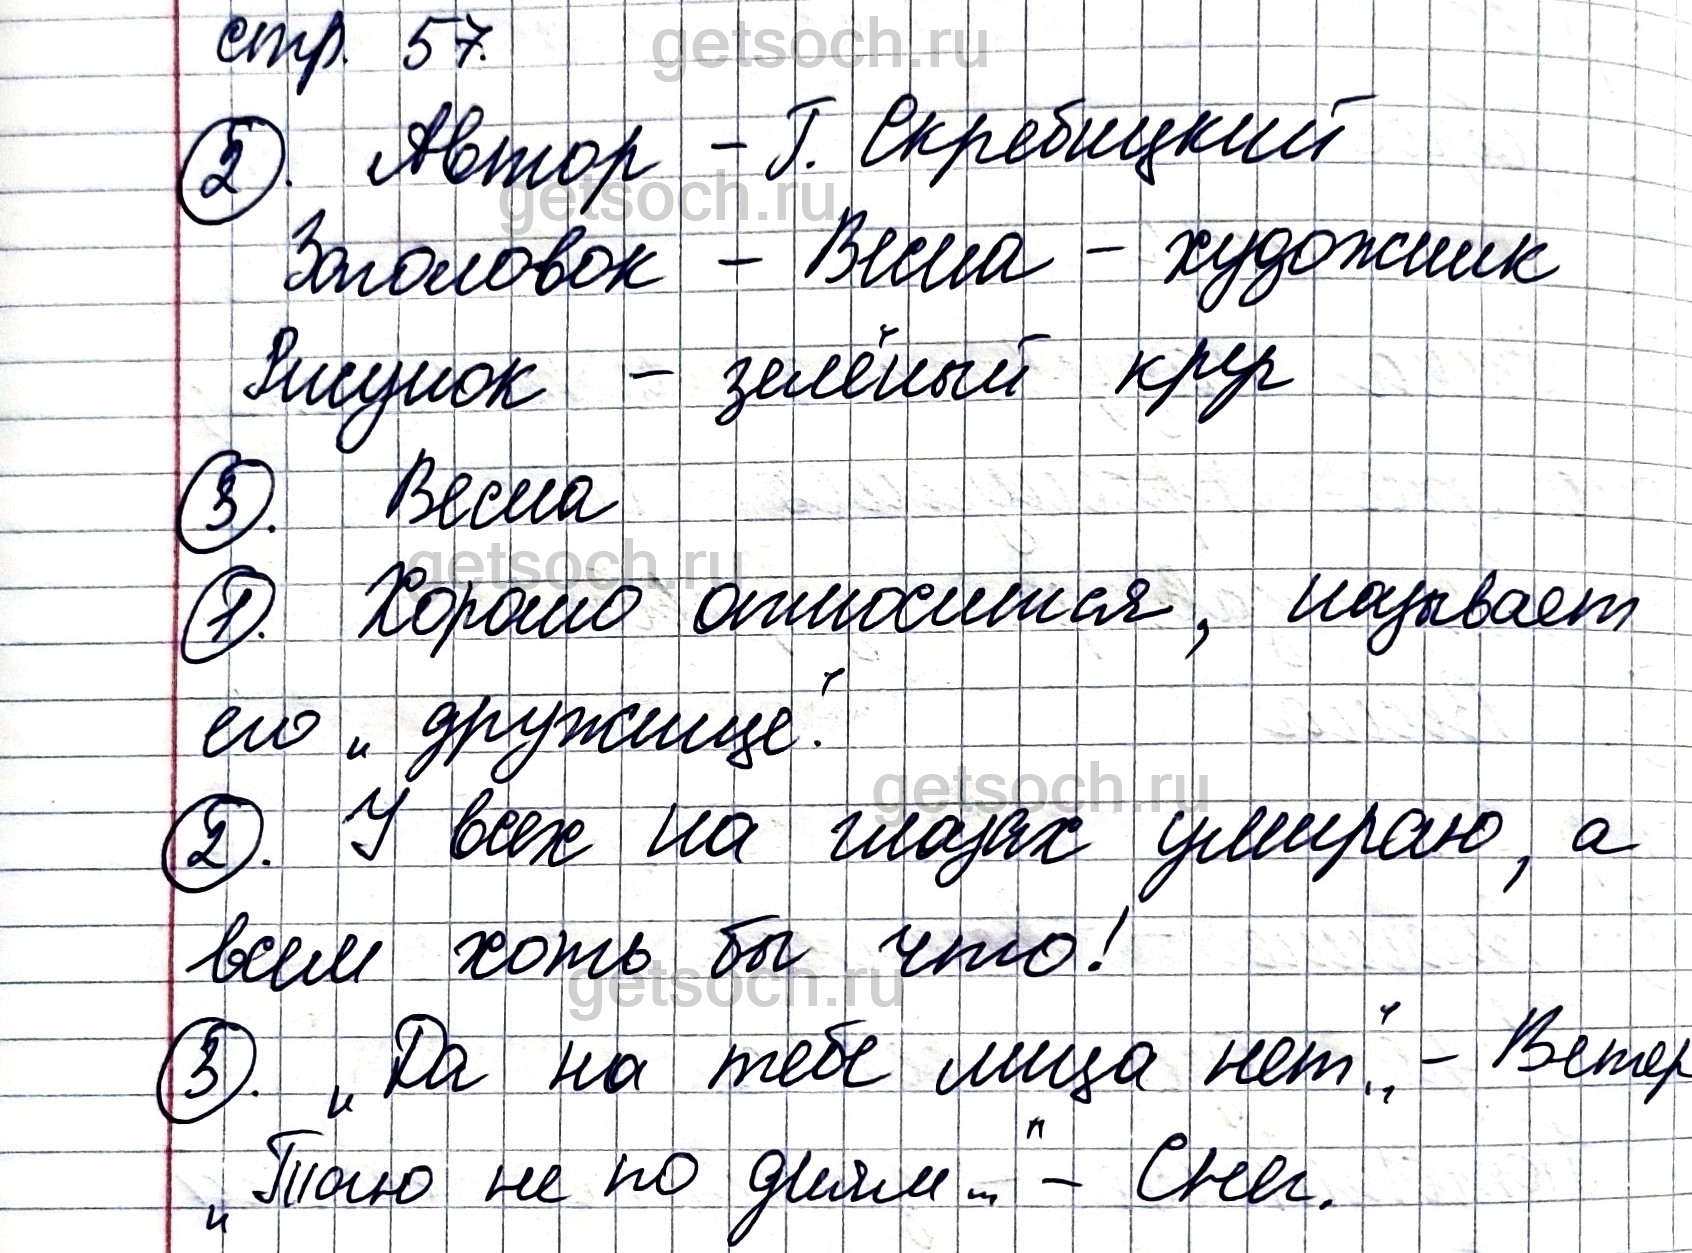 стр. 57.
getsoch.ru
2. Автор – Г. Скребицкий
getsoch.ru
Заголовок – Весна – художник
Рисунок – зелёный круг
3. Весна
getsoch.ru
1. Хорошо относится, называет
его „дружище".
getsoch.ru
2. У всех на глазах умираю, а
всем хоть бы что!
getsoch.ru
3. „Да на тебе лица нет..." – Ветер
„Таю не по дням..." – Снег.